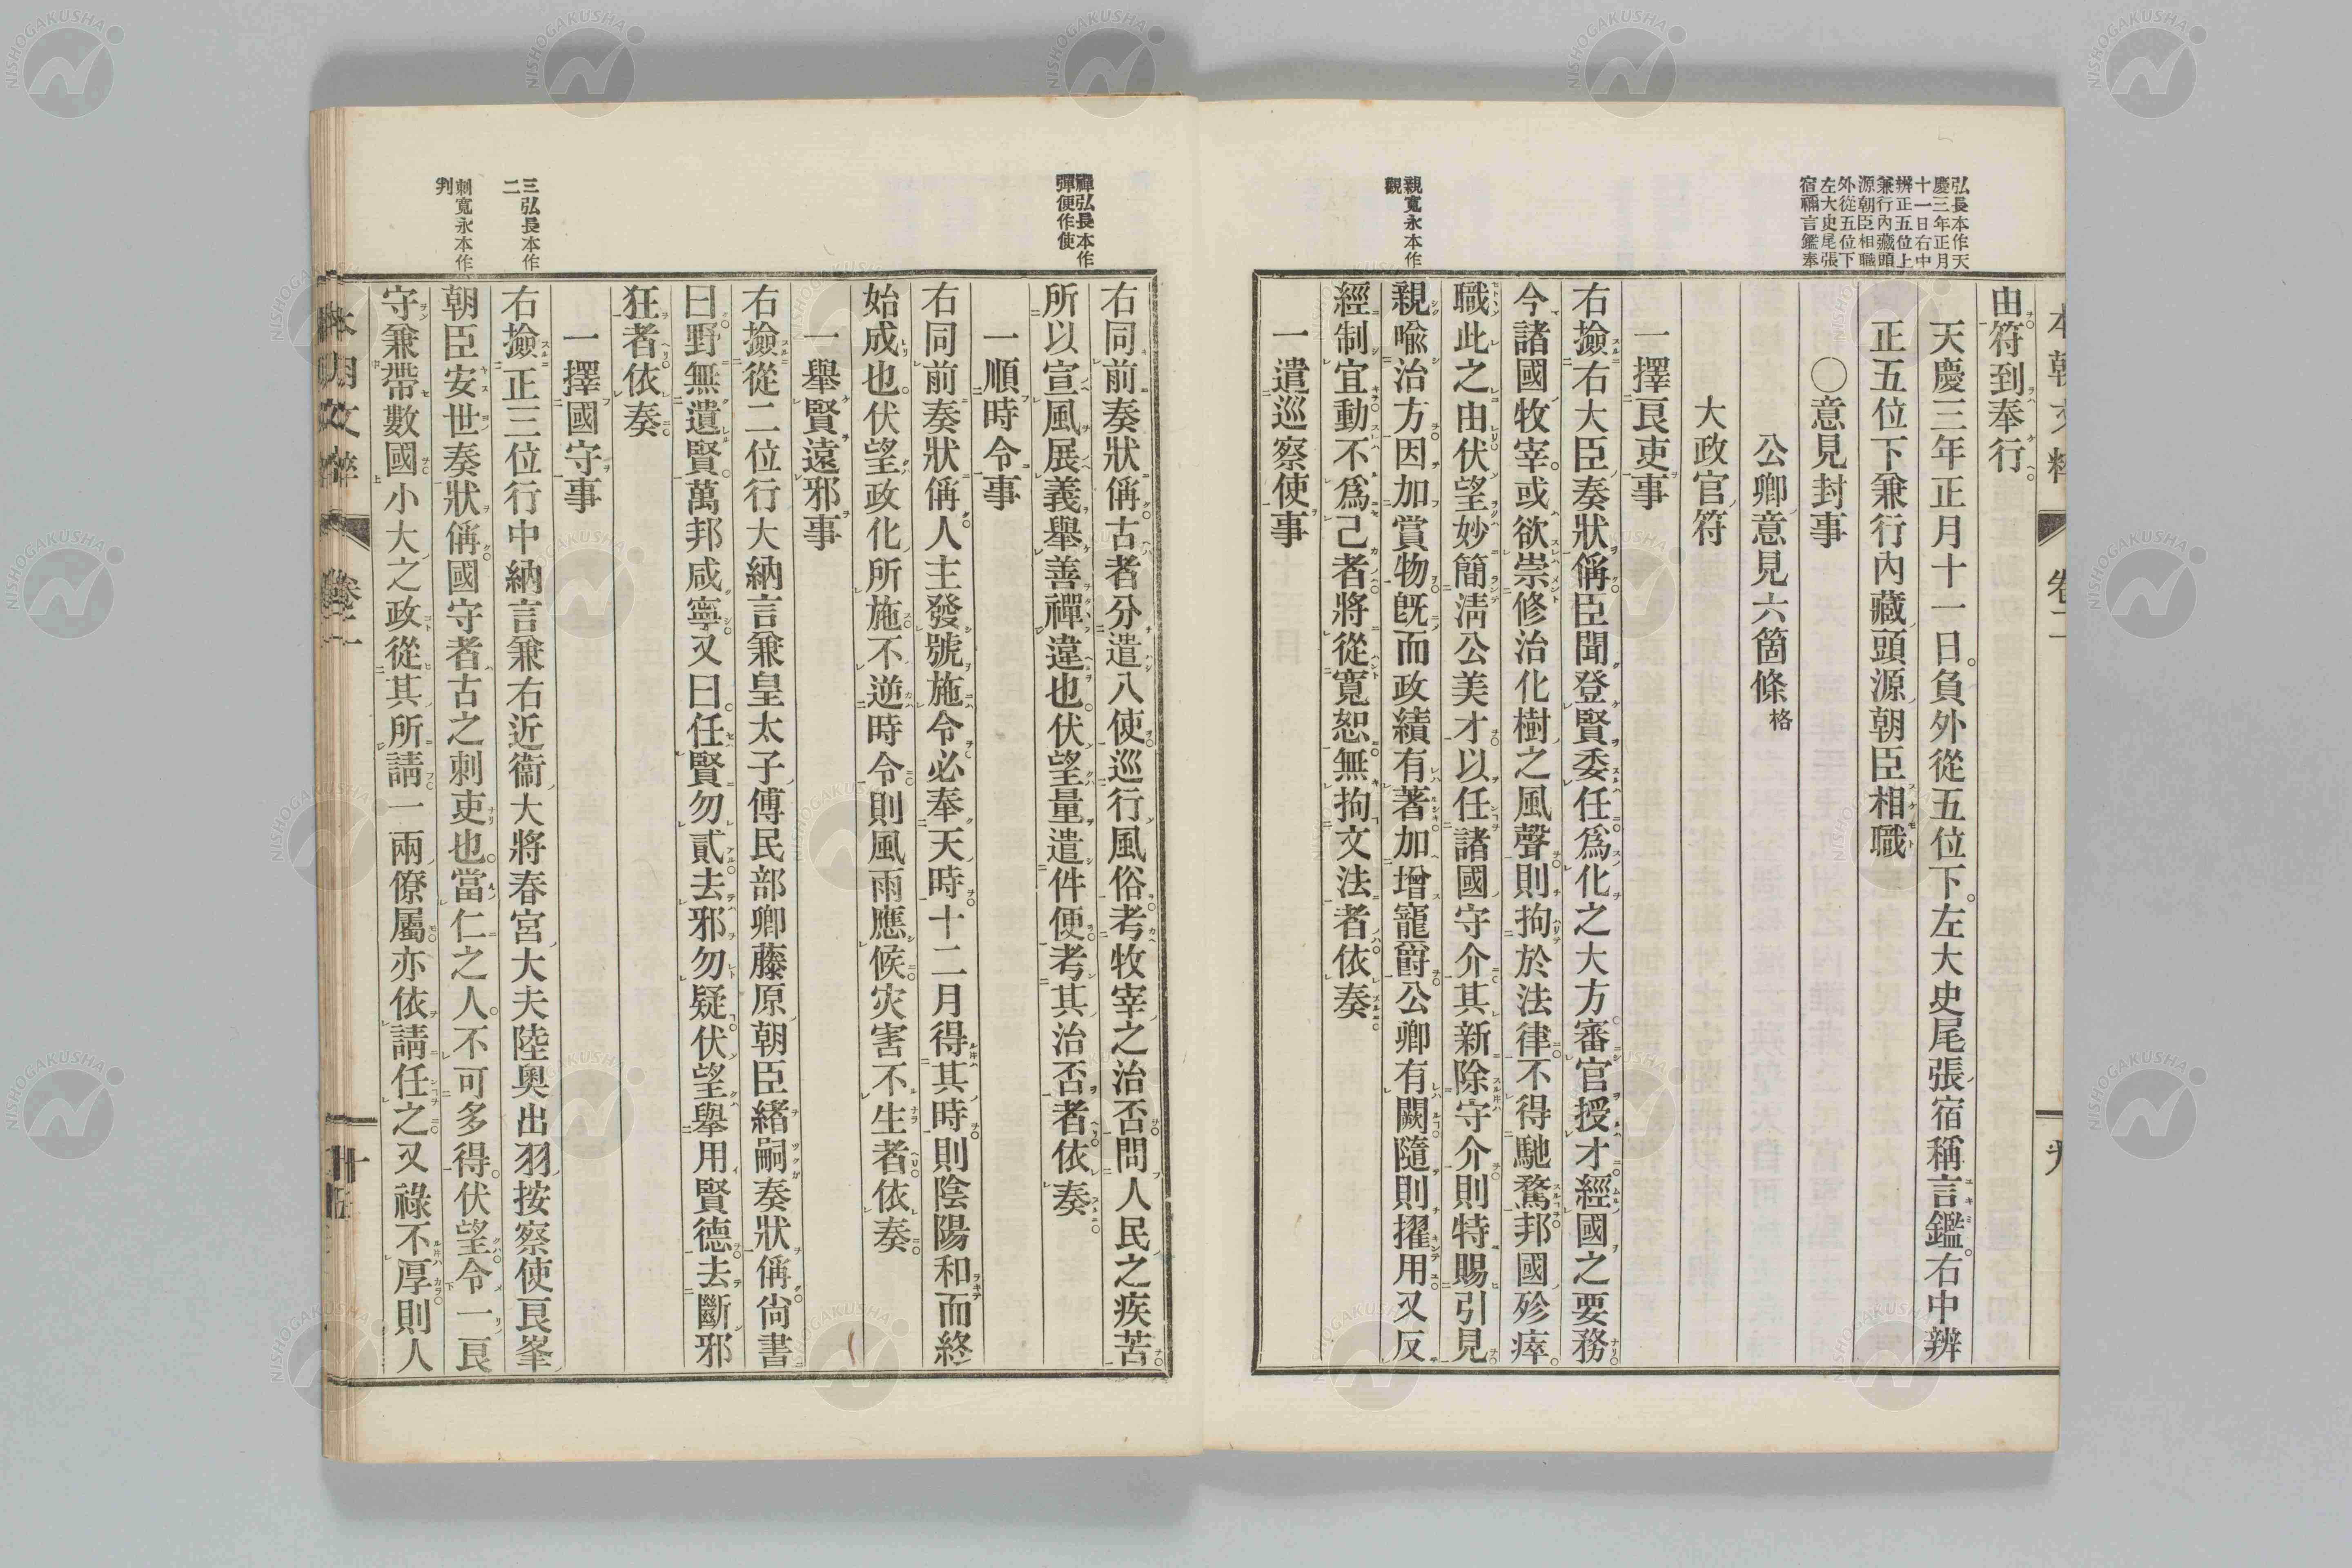 本朝文粹 卷二
弘長本作天
慶三年正月
十一日右中
辨正五位上
兼行內藏頭
源朝臣相職
外從五位下
左大史尾張
宿禰言鑑奉
由符到奉行
天慶三年正月十一日負外從五位下左大史尾張宿稱言鑑右中辨
正五位下兼行內藏頭源朝臣相職
〇意見封事
公卿意見六箇條格
大政官符
一擇良吏事
右撿右大臣奏狀偁臣聞登賢委任爲化之大方審官授才經國之要務
今諸國牧宰或欲崇修治化樹之風聲則拘於法律不得馳騖邦國殄瘁
職此之由伏望妙簡淸公美才以任諸國守介其新除守介則特賜引見
親喩治方因加賞物旣而政績有著加增寵爵公卿有闕隨則擢用又反
經制宜動不爲己者將從寬恕無拘文法者依奏
一遣巡察使事
親寬永本作
觀
禪弘長本作
彈便作使
右同前奏狀偁古者分遣八使巡行風俗考牧宰之治否問人民之疾苦
所以宣風展義舉善禪違也伏望量遣件便考其治否者依奏
一順時令事
右同前奏狀偁人主發號施令必奉天時十二月得其時則陰陽和而終
始成也伏望政化所施不逆時令則風雨應候灾害不生者依奏
一舉賢遠邪事
右撿從二位行大納言兼皇太子傅民部卿藤原朝臣緒嗣奏狀偁尙書
曰野無遺賢萬邦咸寧又曰任賢勿貳去邪勿疑伏望舉用賢德去斷邪
狂者依奏
一擇國守事
右撿正三位行中納言兼右近衞大將春宮大夫陸奧出羽按察使良峯
朝臣安世奏狀偁國守者古之刺吏也當仁之人不可多得伏望令一良
守兼帶數國小大之政從其所請一兩僚屬亦依請任之又祿不厚則人
三弘長本作
二
刺寬永本作
判
本朝文粹 卷二